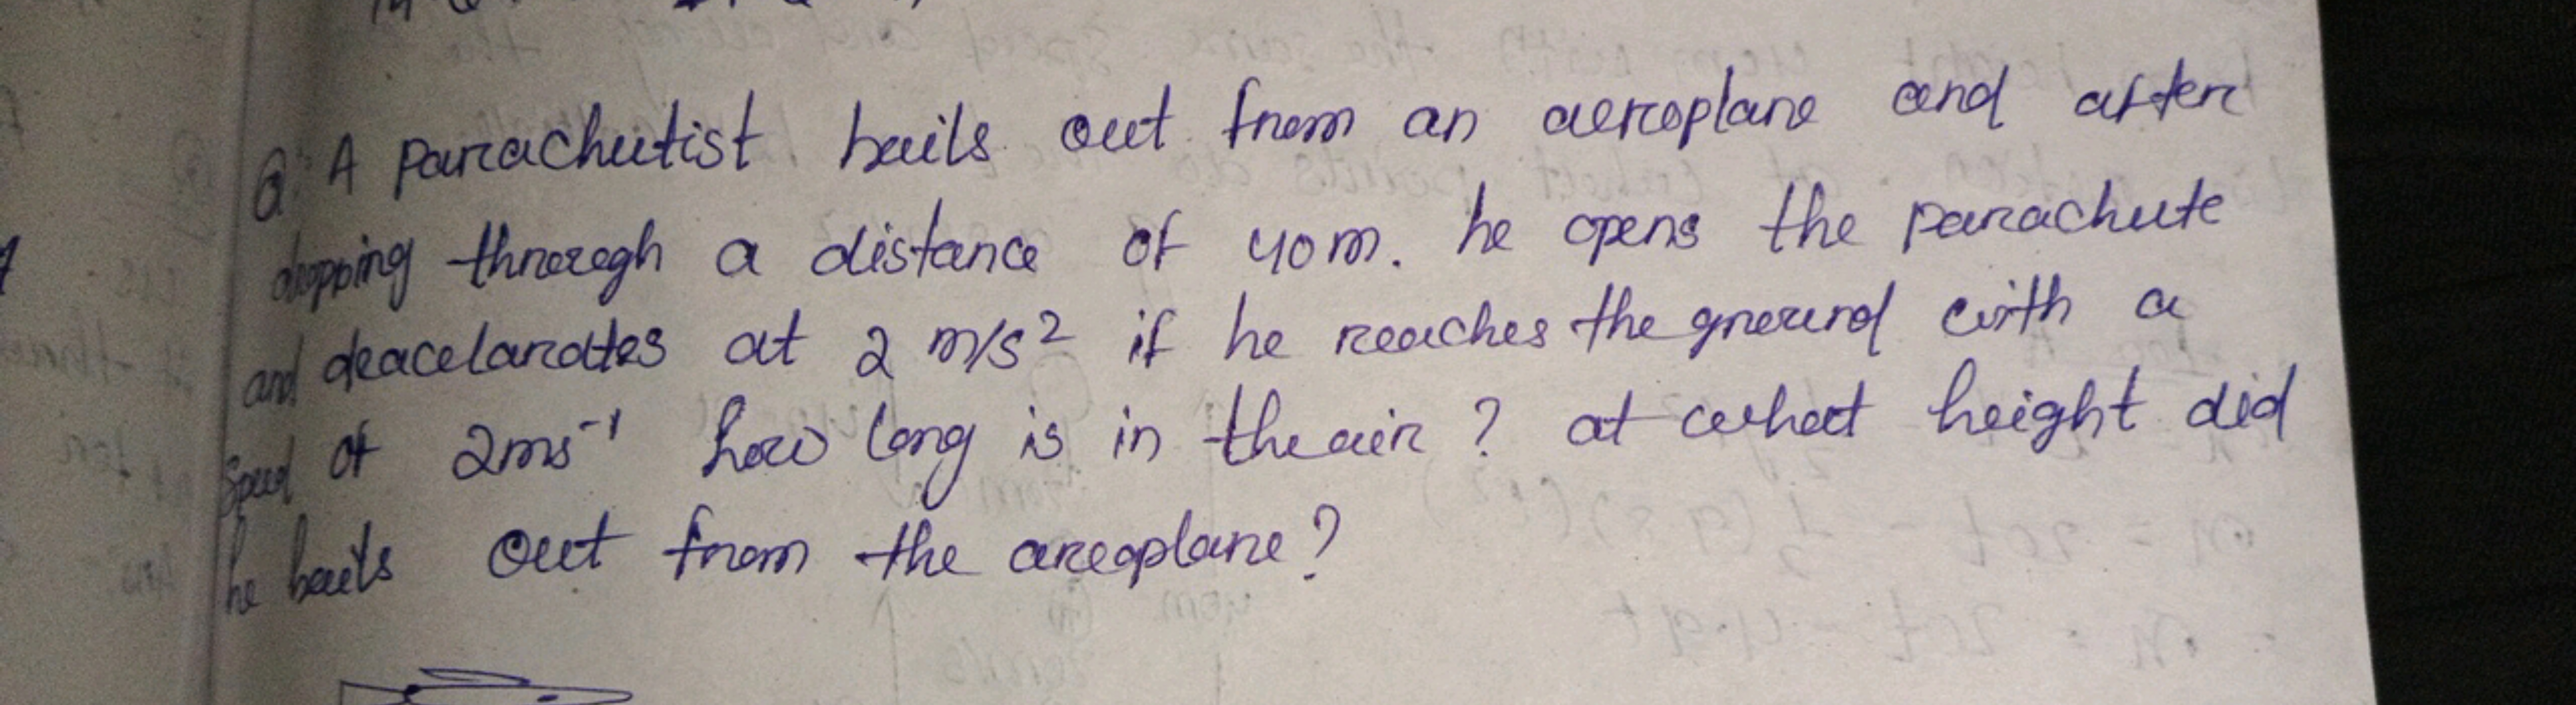 Q. A parachutist bails out from an aeroplane and after
dropping through a distance of 40m. he opens the parachute
and deacelarates at 2 m/s² if he reaches the ground with a
speed of 2ms⁻¹ how long is in the air ? at what height did
he bails out from the areoplane?